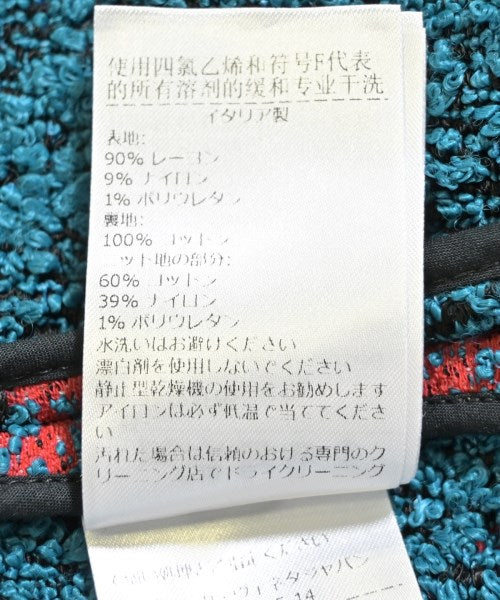 使用四氯乙烯和符号F代表
的所有溶剂的缓和专业干洗
イタリア製
表地:
90% レーヨン
9% ナイロン
1% ポリウレタン
裏地:
100% コットン
ニット地の部分:
60% コットン
39% ナイロン
1% ポリウレタン
水洗いはお避けください
漂白剤を使用しないでください
静止型乾燥機の使用をお勧めします
アイロンは必ず低温で当ててくださ
い
汚れた場合は信頼のおける専門のク
リーニング店でドライクリーニング
ください
ジャパン
14